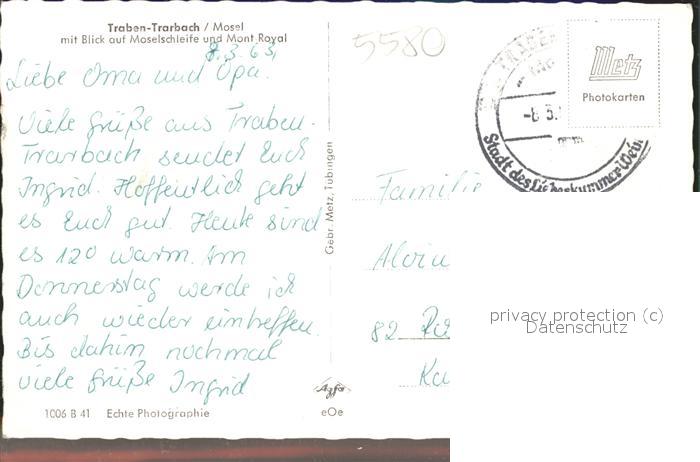 Traben-Trarbach / Mosel
mit Blick auf Moselschleife und Mont Royal
8.3.63
5580
Liebe Oma und Opa.
Viele Grüße aus Traben-
Trarbach sendet Euch
Ingrid. Hoffentlich geht
es Euch gut. Heute sind
es 12° warm. Am
Donnerstag werde ich
auch wieder eintreffen.
Bis dahin nochmal
viele Grüße Ingrid
1006 B 41 Echte Photographie
Gebr. Metz, Tübingen
Agfa
eOe
Metz
Photokarten
Stadt des Liebeskummer-Wein
Familie
82
privacy protection (c)
Datenschutz